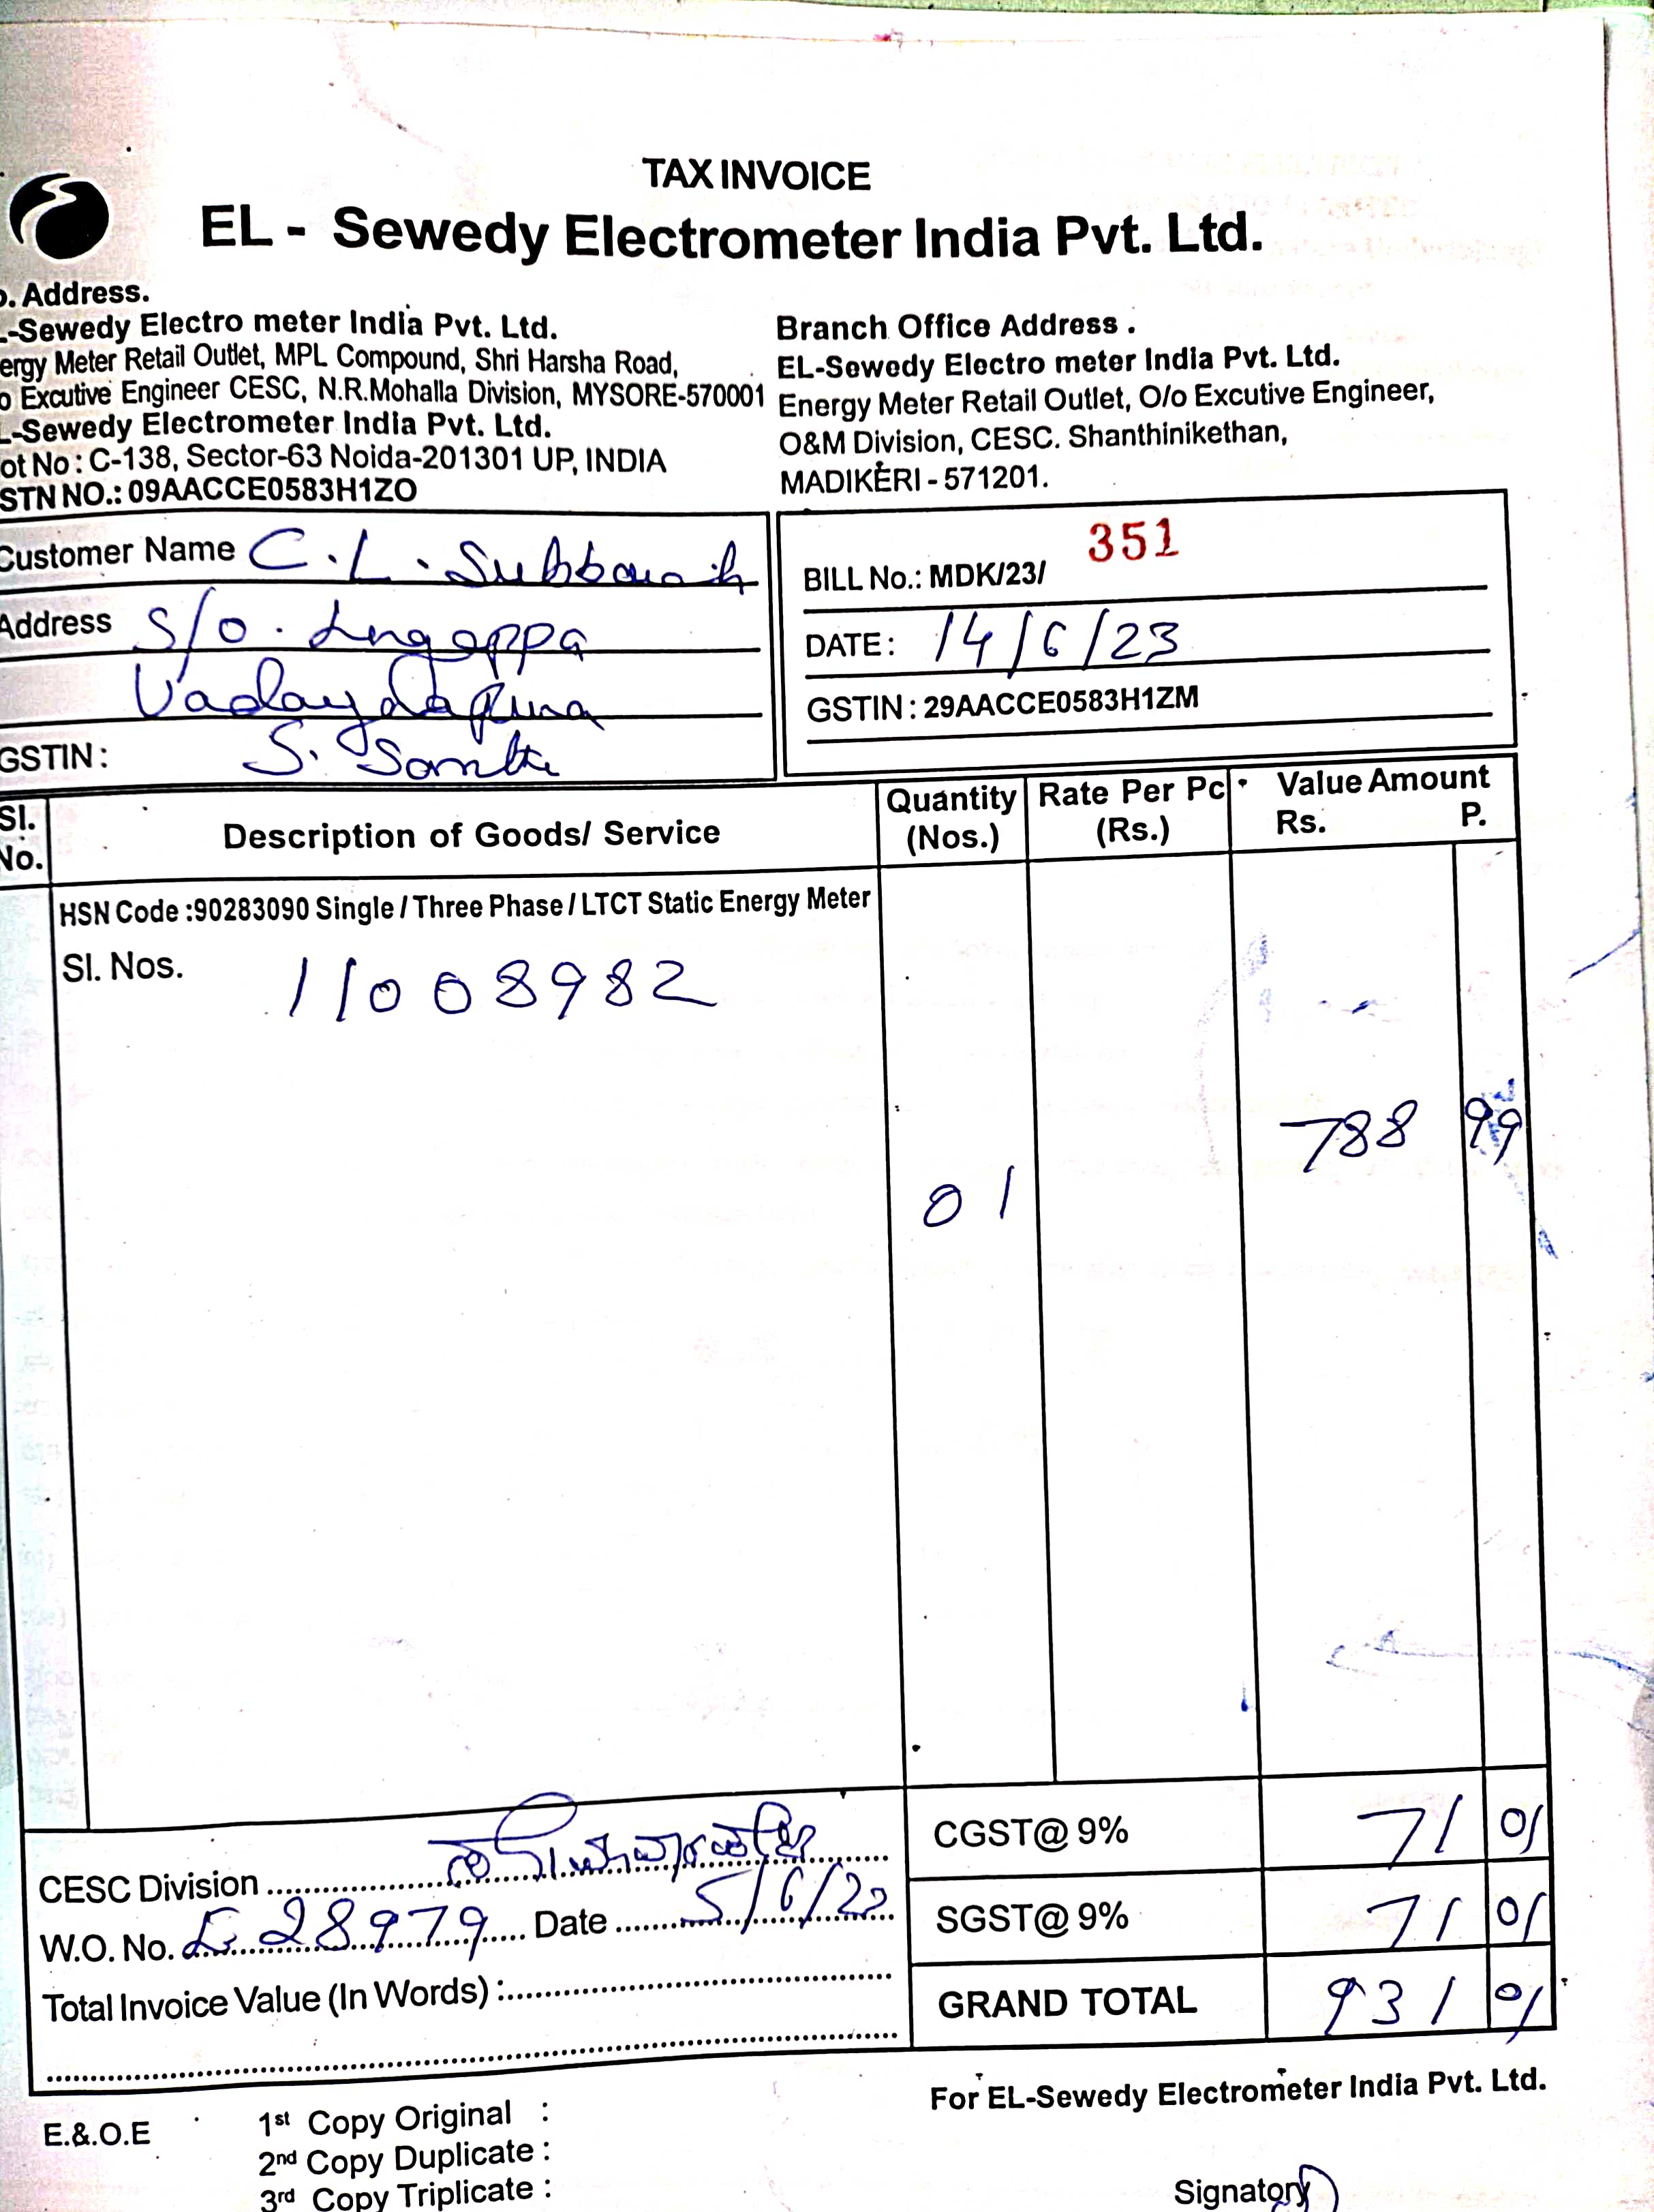 TAX INVOICE
EL - Sewedy Electrometer India Pvt. Ltd.
o. Address.
L-Sewedy Electro meter India Pvt. Ltd.
ergy Meter Retail Outlet, MPL Compound, Shri Harsha Road,
o Excutive Engineer CESC, N.R.Mohalla Division, MYSORE-570001
L-Sewedy Electrometer India Pvt. Ltd.
ot No : C-138, Sector-63 Noida-201301 UP, INDIA
STN NO.: 09AACCE0583H1ZO
Branch Office Address .
EL-Sewedy Electro meter India Pvt. Ltd.
Energy Meter Retail Outlet, O/o Excutive Engineer,
O&M Division, CESC. Shanthinikethan,
MADIKERI - 571201.
Customer Name C. L. Subbaiah
Address S/o. Lingappa
GSTIN :
BILL No.: MDK/23/ 351
DATE : 14/6/23
GSTIN : 29AACCE0583H1ZM
Sl. No. Description of Goods/ Service Quantity (Nos.) Rate Per Pc (Rs.) Value Amount Rs. P.
HSN Code :90283090 Single / Three Phase / LTCT Static Energy Meter
Sl. Nos. 11008982
01 788 99
CESC Division
W.O. No. 28979 Date 5/6/23
Total Invoice Value (In Words) :
CGST@ 9% 71 01
SGST@ 9% 71 01
GRAND TOTAL 931 01
For EL-Sewedy Electrometer India Pvt. Ltd.
E.&.O.E
1st Copy Original :
2nd Copy Duplicate :
3rd Copy Triplicate :
Signatory